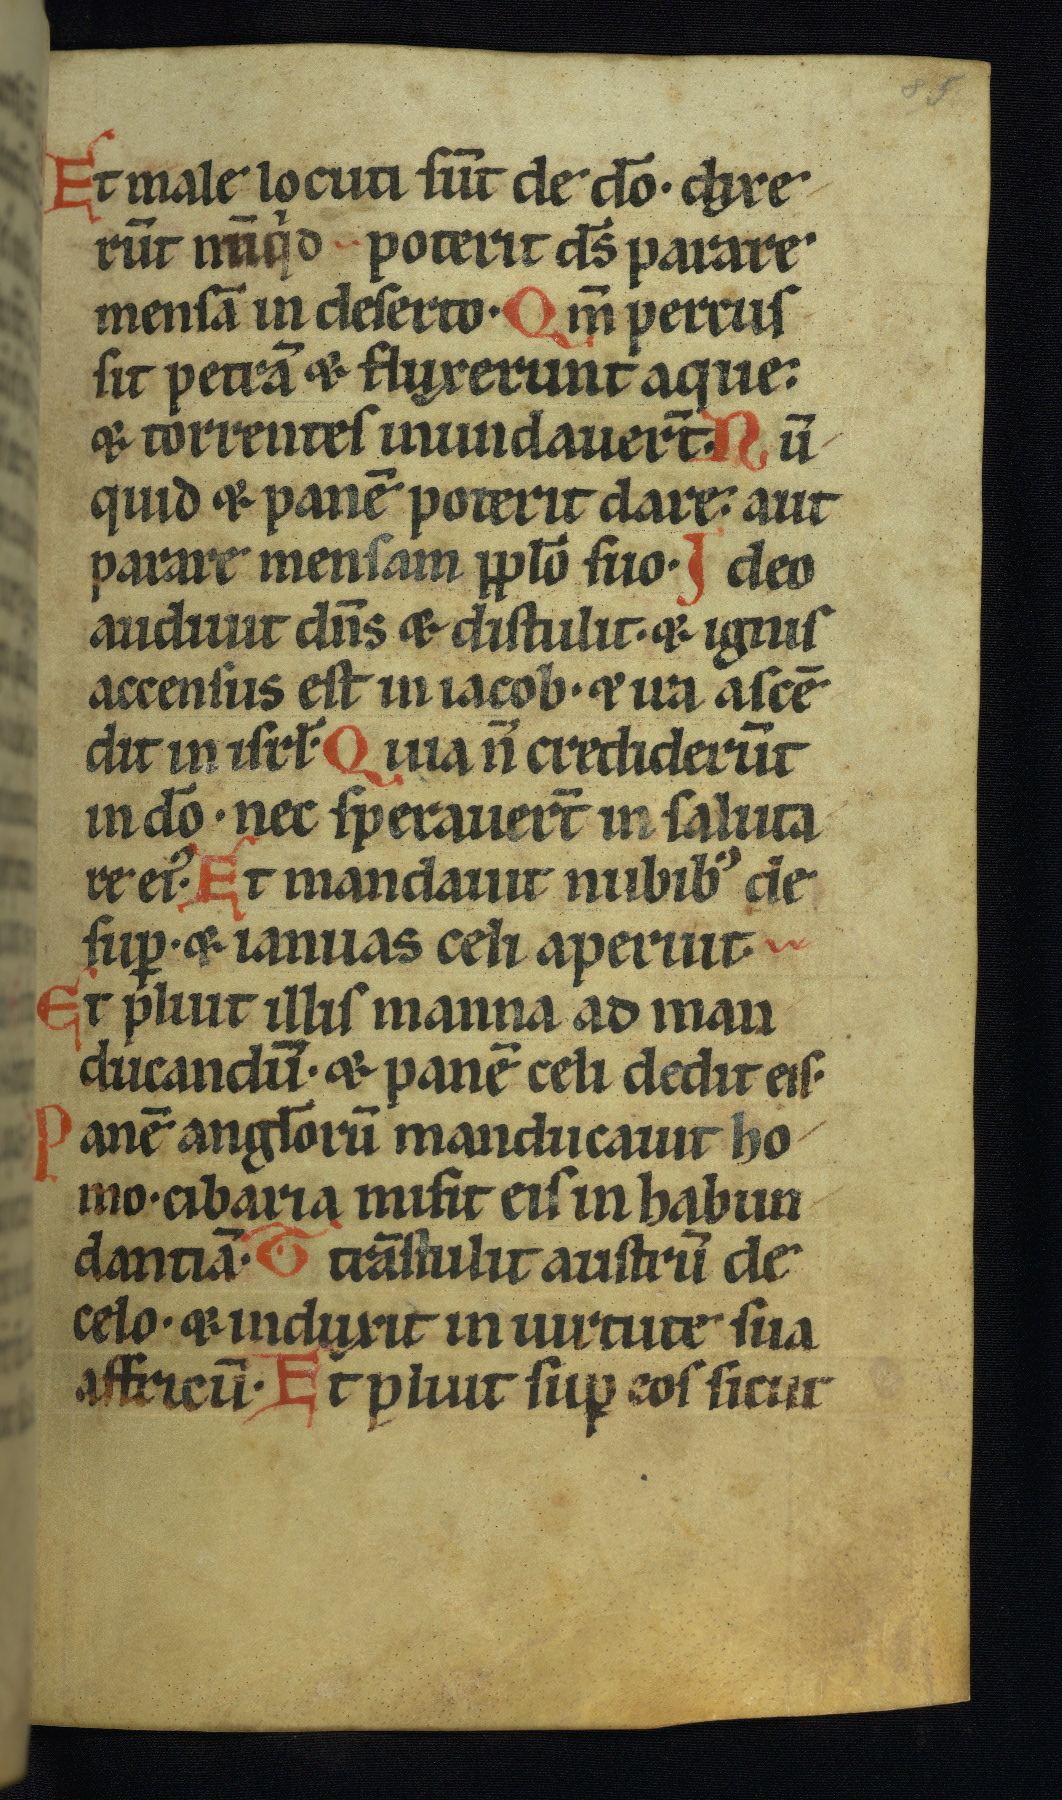 85
Et male locuti sūt de dō · dyxe
rūt nūqid poterit ds̄ parare
mensā in deserto · Qm̄ percus
sit petrā & fluxerunt aque:
& torrentes inundauert̄ · Nū
quid & panē poterit dare: aut
parare mensam pplō suo · Ideo
audiuit dn̄s & distulit · & ignis
accensus est in iacob · & ira ascē
dit in isrl̄ · Quia n̄ crediderūt
in dō · nec sperauert̄ in saluta
re ei᾿ · Et mandauit nubib᾿ de
sup̱ · & ianuas celi aperuit ·
Et pluit illis manna ad man
ducandū · & panē celi dedit eis ·
Panē anglorū manducauit ho
mo · cibaria misit eis in habun
dantiā · T trāstulit austrū de
celo · & induxit in uirtute sua
affricū · Et pluit sup̱ eos sicut